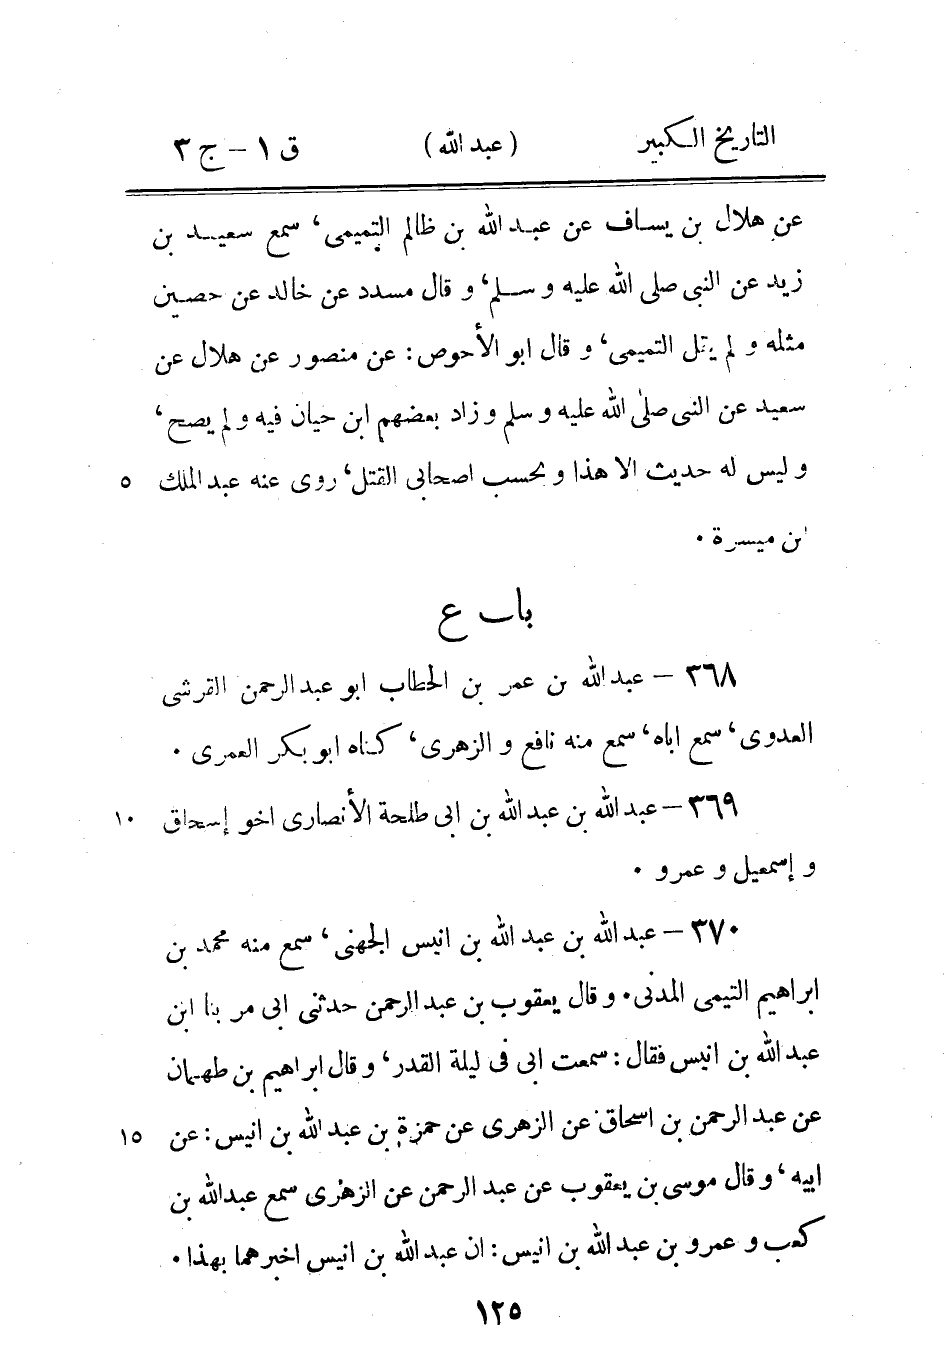 التاريخ الكبير (عبد الله) ق ١ – ج ٣
عن هلال بن يساف عن عبد الله بن ظالم التميمى، سمع سعيد بن
زيد عن النبى صلى الله عليه و سلم، و قال مسدد عن خالد عن حصين
مثله و لم يقل التميمى، و قال ابو الأحوص: عن منصور عن هلال عن
سعيد عن النبى صلى الله عليه و سلم و زاد بعضهم ابن حيان فيه و لم يصح،
و ليس له حديث الا هذا و بحسب اصحابى القتل، روى عنه عبد الملك ٥
ابن ميسرة ٠
باب ع
٣٦٨ – عبد الله بن عمر بن الخطاب ابو عبد الرحمن القرشى
العدوى، سمع اباه، سمع منه نافع و الزهرى، كناه ابو بكر العمرى ٠
٣٦٩ – عبد الله بن عبد الله بن ابى طلحة الأنصارى اخو إسحاق ١٠
و إسمعيل و عمرو ٠
٣٧٠ – عبد الله بن عبد الله بن انيس الجهنى، سمع منه محمد بن
ابراهيم التيمى المدنى ٠ و قال يعقوب بن عبد الرحمن حدثنى ابى مر بنا ابن
عبد الله بن انيس فقال: سمعت ابى فى ليلة القدر، و قال ابراهيم بن طهمان
عن عبد الرحمن بن اسحاق عن الزهرى عن حمزة بن عبد الله بن انيس: عن ١٥
ابيه، و قال موسى بن يعقوب عن عبد الرحمن عن الزهرى سمع عبد الله بن
كعب و عمرو بن عبد الله بن انيس: ان عبد الله بن انيس اخبرهما بهذا ٠
١٢٥